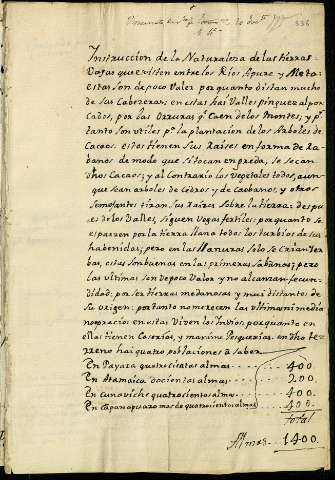 336
Instruccion de la Naturaleza de las tierras
Vosas que existen entre los Rios Apure y Meta:
estas son de poco Valor por quanto distan mucho
de sus Cabezeras; en estas hai Valles pingues aplor
cados, por las que caen de los Montes; y pr
tanto son utiles pa la plantacion de los Arboles de
Cacao: estos tienen sus Raises en forma de Ra
banos de modo que si tocan en piedra, se secan
los Cacaos; y al contrario los vegetales todos, aun
que sean arboles de Cedros y de Caobanos, y otros
Semejantes tiran sus Raizes Sobre la tierra: despu
es de los Valles, siguen Vegas fertiles: por quanto se
esparsen por la tierra llano todos los turbios de sus
habenidas; pero en las Llanuras Solo se crian Yer
bas, estas son buenas en las primeras Sabanas; pero
las ultimas son de poco Valor y no alcanzan fecun
didad: por ser tierras medanosas y mui distantes de
su origen: por tanto no merecen las ultimas ni media
en estas Viven los Indios, por quanto en
ellas tienen Caserias, y Pesquerias: en dho te
rreno hai quatro poblaciones a saber
En Payara quatrocientas almas 400
En Atamaica docientas almas 200
En Cunaviche quatrocientas almas 400
En Capanaparo mas de quatrocientas almas 400
total
Almas 1400